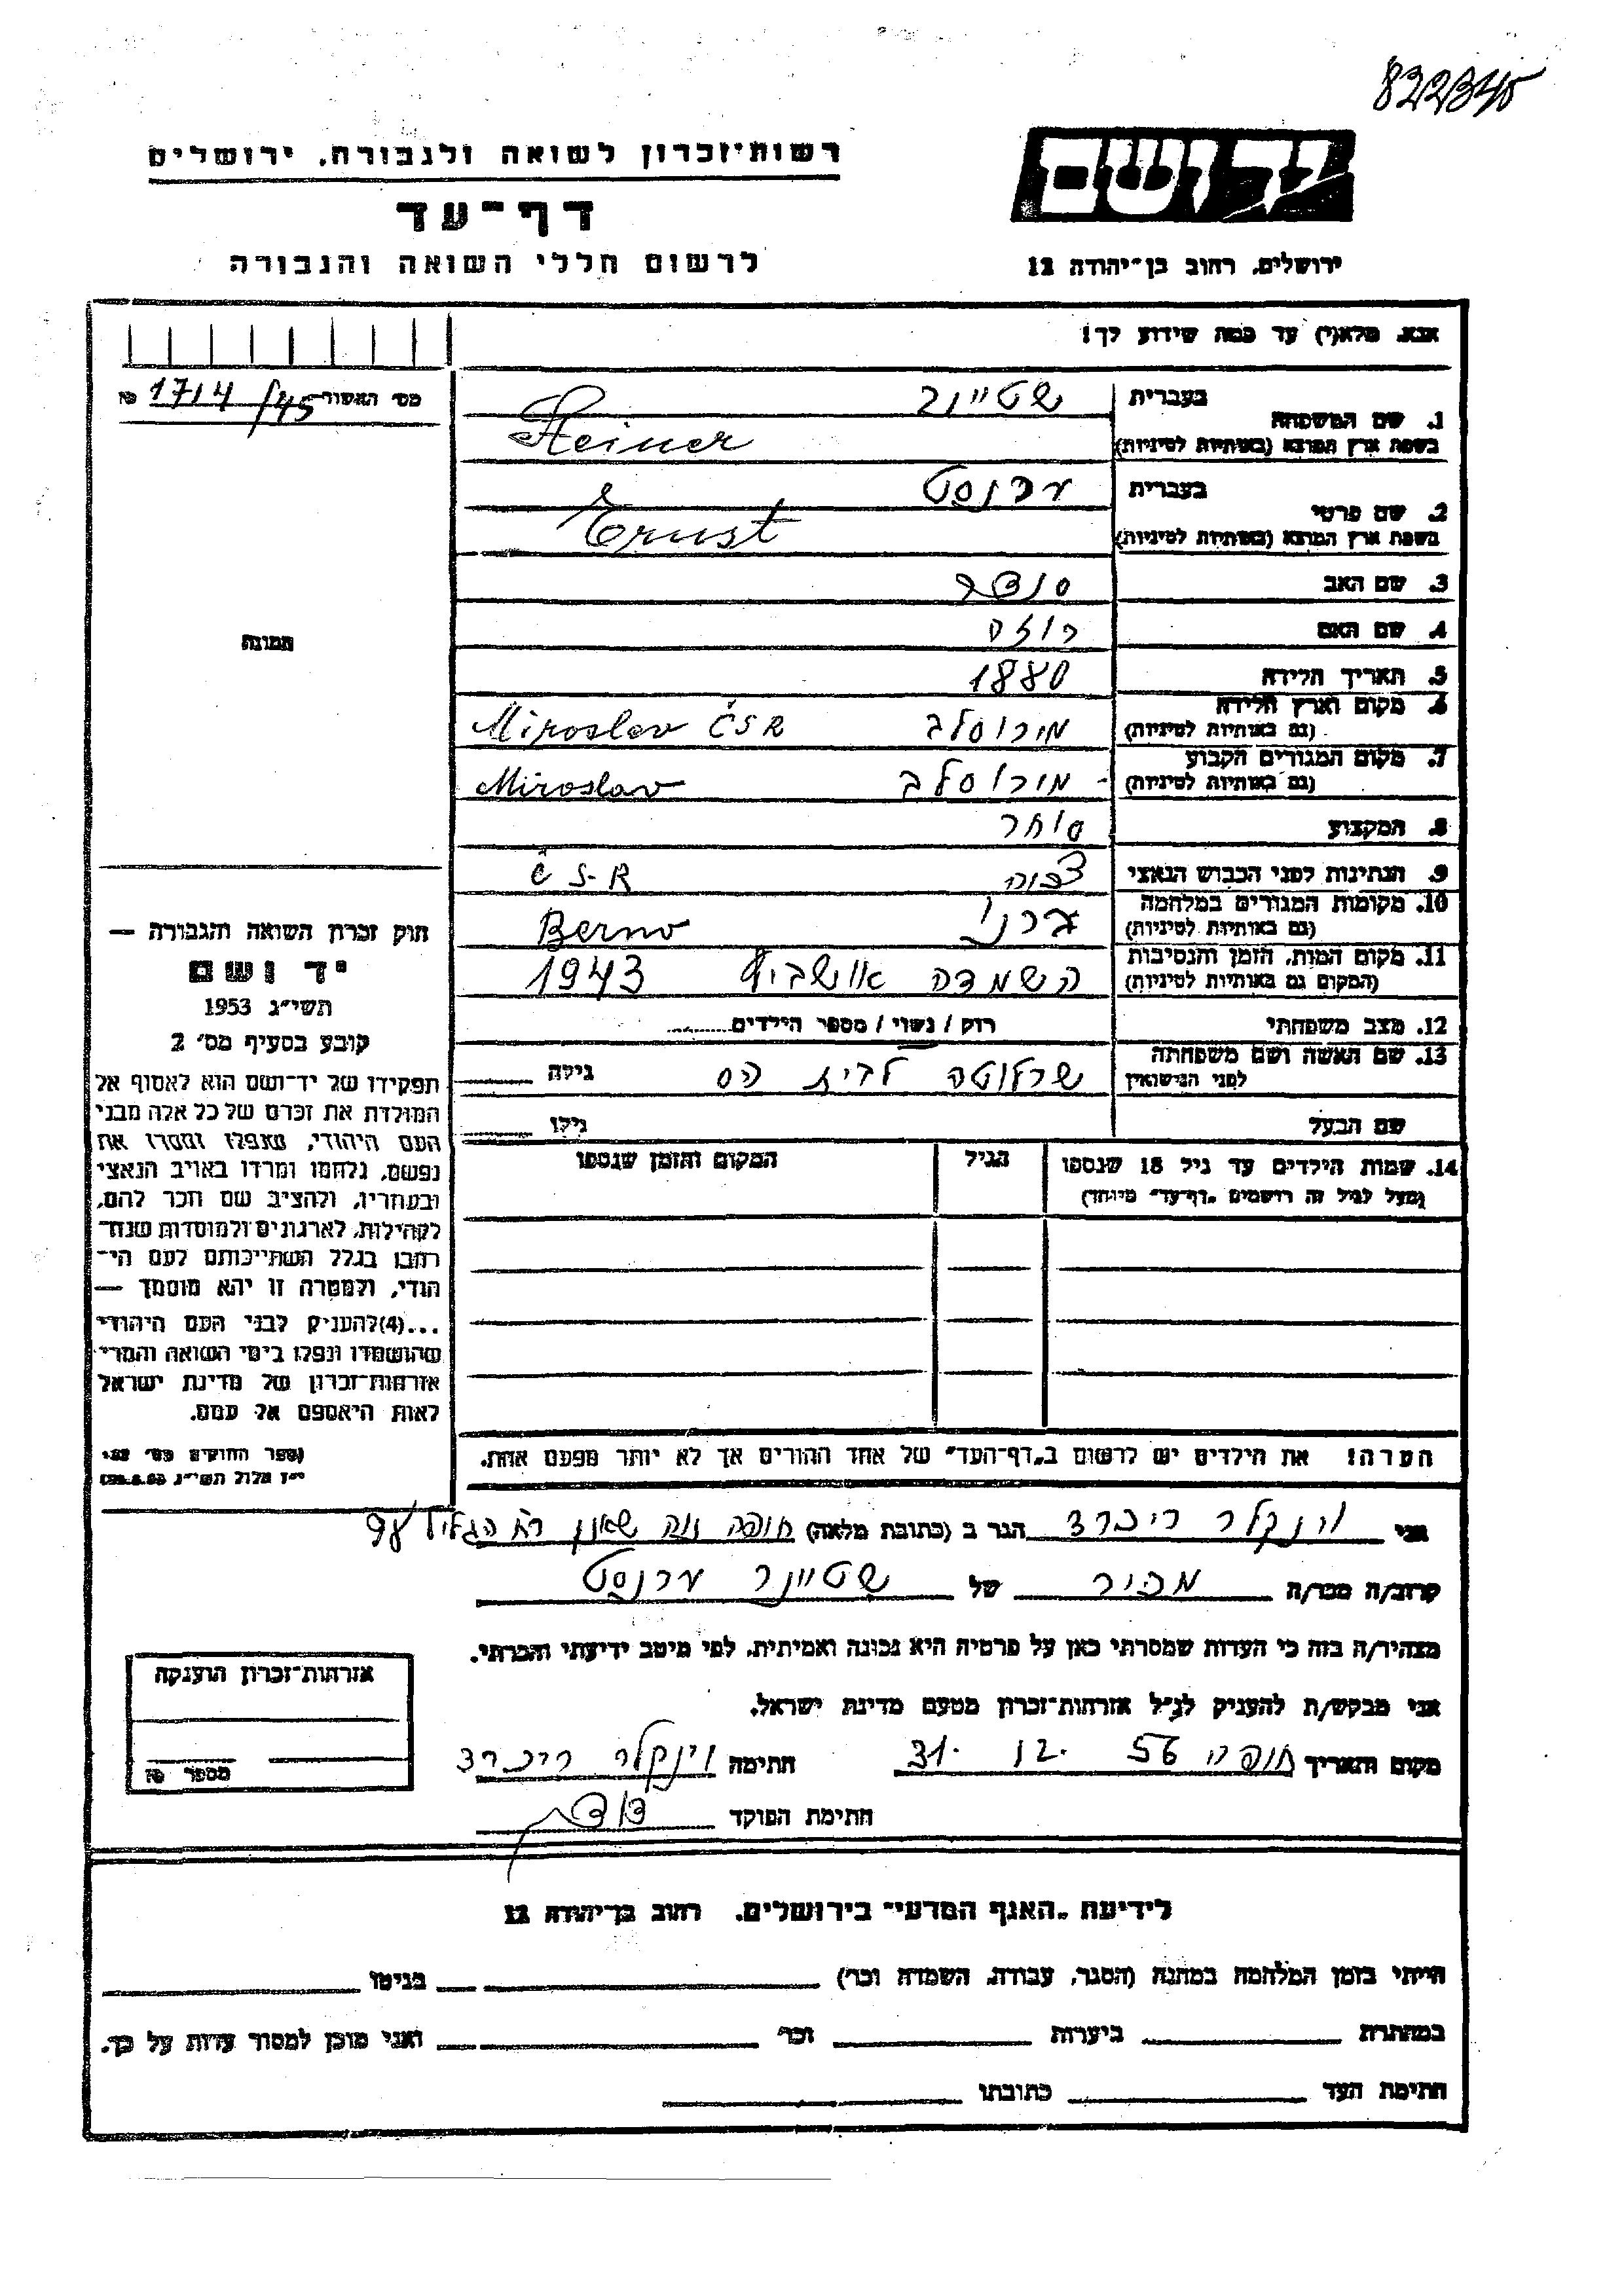 822345
יד ושם
רשות־זכרון לשואה ולגבורה, ירושלים
דף־עד
לרשום חללי השואה והגבורה
ירושלים, רחוב בן־יהודה 12
אנא, מלא(י) עד כמה שידוע לך!
מס' האשור 1714/45 №
1. שם המשפחה בעברית שטיינר
בשפת ארץ המוצא (באותיות לטיניות) Steiner
2. שם פרטי בעברית ארנסט
בשפת ארץ המוצא (באותיות לטיניות) Ernst
3. שם האב
4. שם האם רוזה
5. תאריך הלידה 1880
6. מקום וארץ הלידה (גם באותיות לטיניות) מירוסלב Miroslav ČSR
7. מקום המגורים הקבוע (גם באותיות לטיניות) מירוסלב Miroslav
8. המקצוע סוחר
9. הנתינות לפני הכבוש הנאצי צכיה ČSR
10. מקומות המגורים במלחמה (גם באותיות לטיניות) ברנו Berno
11. מקום המות, הזמן והנסיבות (המקום גם באותיות לטיניות) השמדה אושביץ 1943
12. מצב משפחתי רוק / נשוי / מספר הילדים
13. שם האשה ושם משפחתה לפני הנישואין שרלוטה לבית הס גילה
שם הבעל גילו
14. שמות הילדים עד גיל 18 שנספו הגיל המקום והזמן שנספו
(מעל לגיל זה רושמים "דף־עד" מיוחד)
הערה! את הילדים יש לרשום ב"דף־העד" של אחד ההורים אך לא יותר מפעם אחת.
תמונה
חוק זכרון השואה והגבורה —
יד ושם
תשי"ג 1953
קובע בסעיף מס' 2
תפקידו של יד־ושם הוא לאסוף אל
המולדת את זכרם של כל אלה מבני
העם היהודי, שנפלו ומסרו את
נפשם, נלחמו ומרדו באויב הנאצי
ובעוזריו, ולהציב שם וזכר להם,
לקהילות, לארגונים ולמוסדות שנח־
רבו בגלל השתייכותם לעם הי־
הודי, ולמטרה זו יהא מוסמך —
...(4) להעניק לבני העם היהודי
שהושמדו ונפלו בימי השואה והמרי
אזרחות־זכרון של מדינת ישראל
לאות היאספם אל עמם.
(ספר החוקים מס' 132
י"ז אלול תשי"ג 28.8.53)
אני וינקלר ריכרד הגר ב (כתובת מלאה) חיפה נוה שאנן רח הגליל 97
קרוב/ה מכר/ה מכיר של שטיינר ארנסט
מצהיר/ה בזה כי העדות שמסרתי כאן על פרטיה היא נכונה ואמיתית, לפי מיטב ידיעתי והכרתי.
אני מבקש/ת להעניק לנ"ל אזרחות־זכרון מטעם מדינת ישראל.
מקום ותאריך חיפה 31. 12. 56 חתימה וינקלר ריכרד
חתימת הפוקד
אזרחות־זכרון הוענקה
מספר №
לידיעת "האגף המדעי" בירושלים, רחוב בן־יהודה 12
הייתי בזמן המלחמה במחנה (הסגר, עבודה, השמדה וכו') בגיטו
במחתרת ביערות וכו' ואני מוכן למסור עדות על כך.
חתימת העד כתובתו